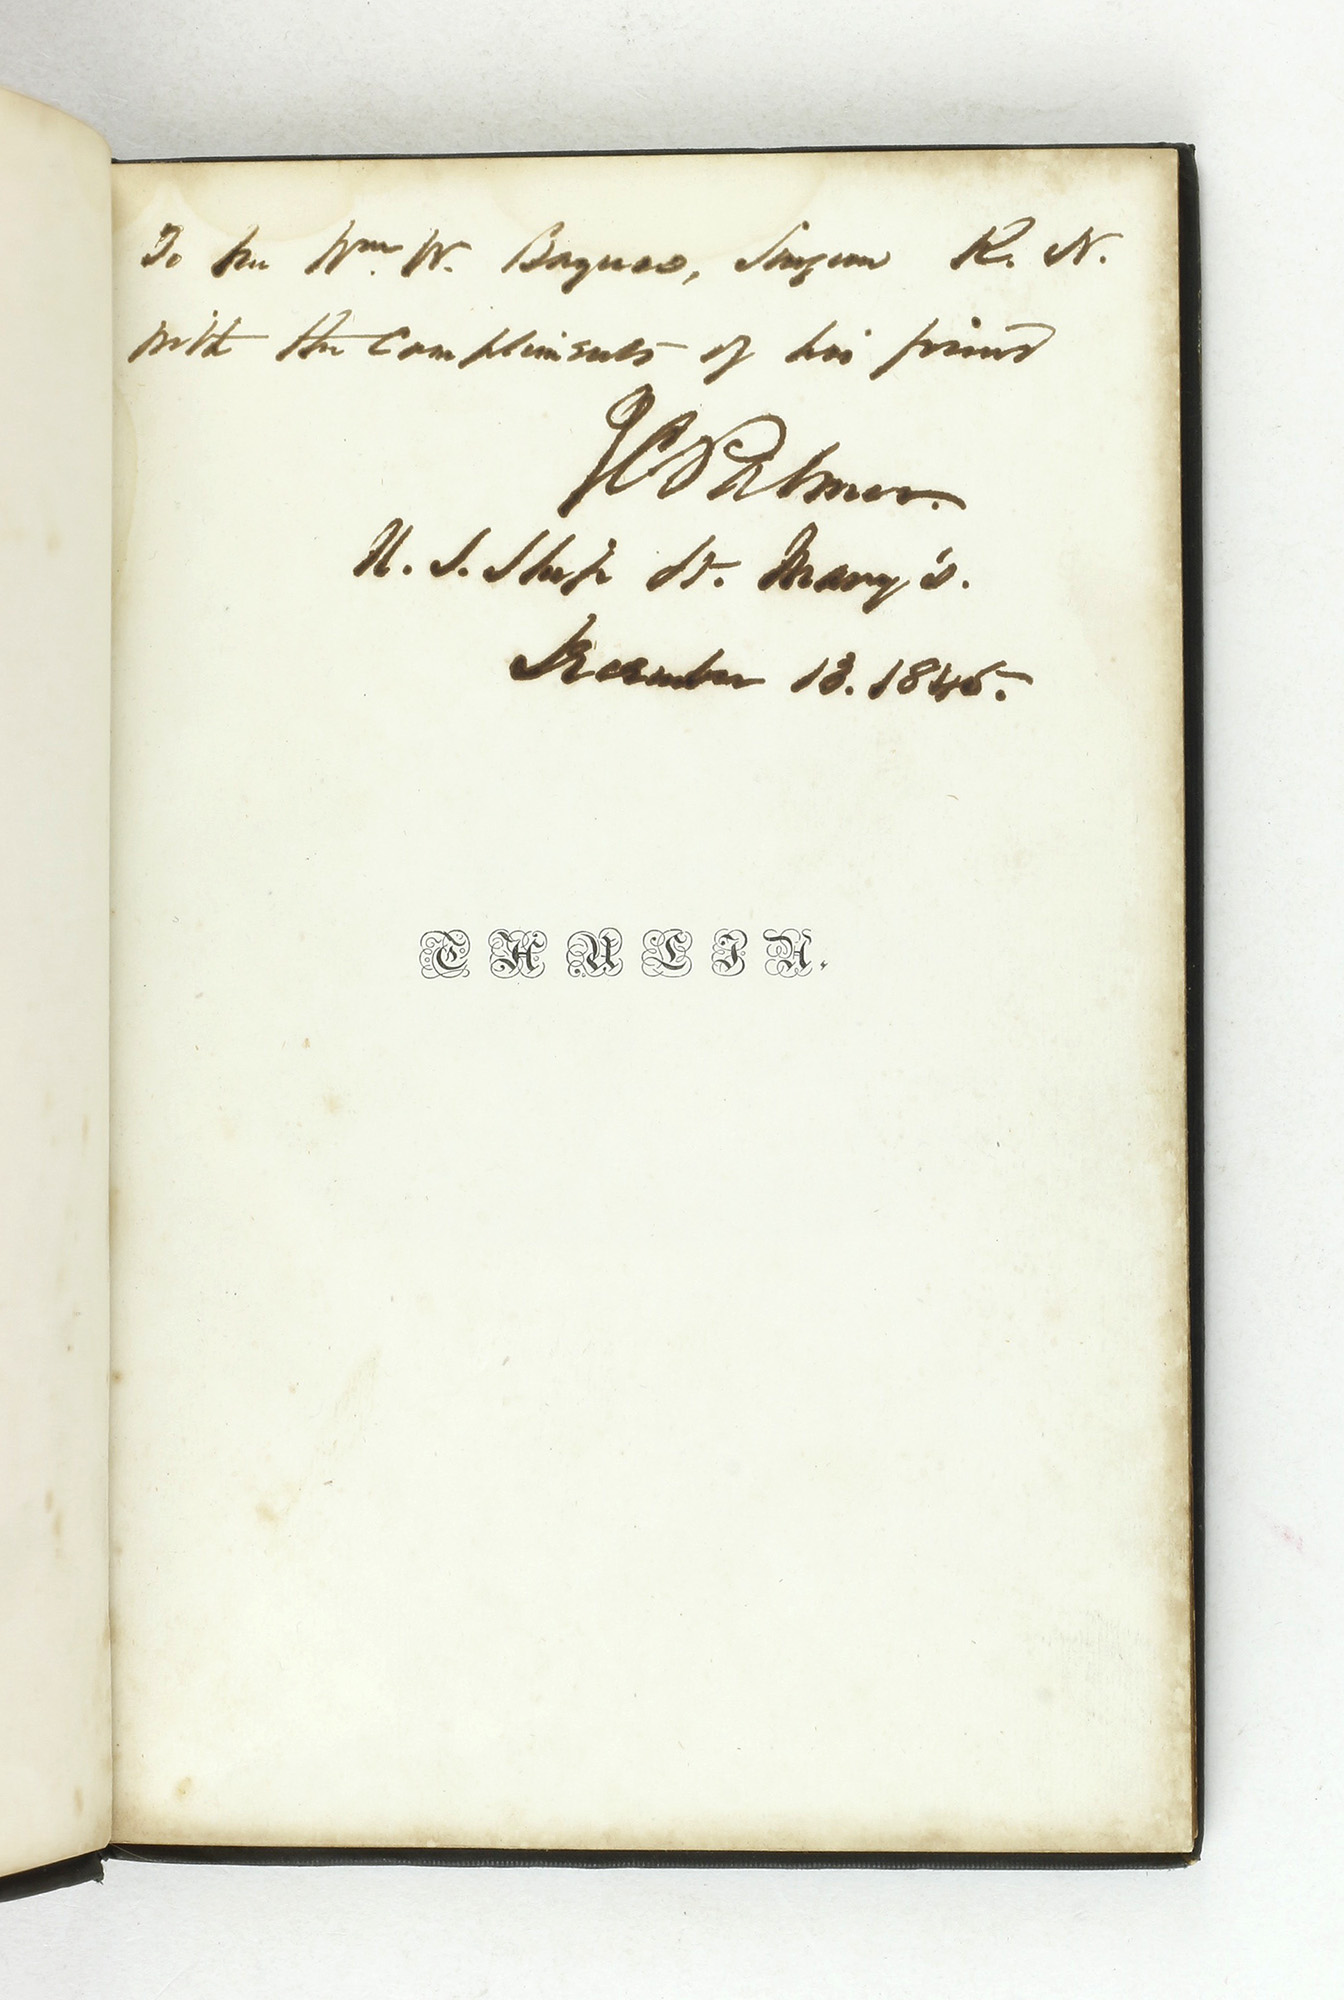 To Mr Wm. W. Surgeon R. N.
with the Compliments of his friend
J C Palmer.
U. S. Ship St. Mary's.
December 13. 1845.
THULIA.